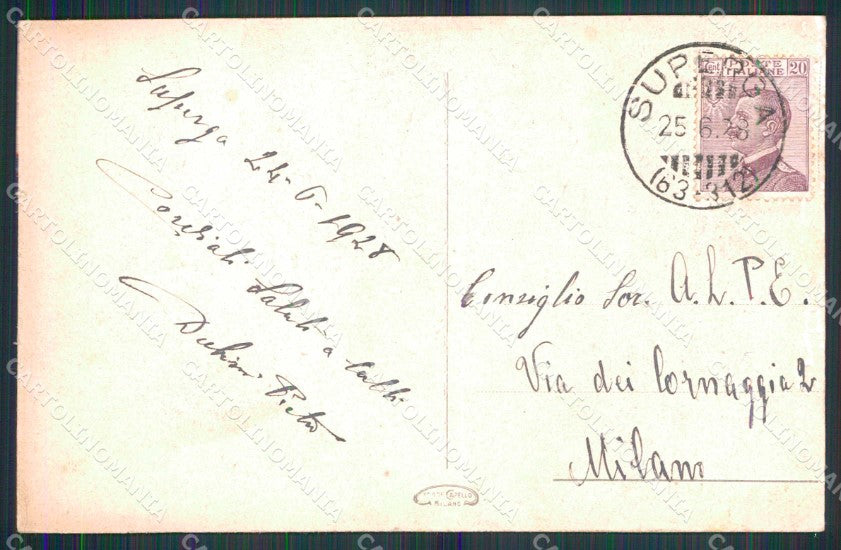 Superga 24-6-1928
Cordiali Saluti a tutti
Pietro
SUPERGA
25.6.28
(63-312)
POSTE ITALIANE 20
Consiglio Sor. A.L.P.E.
Via dei Cornaggia 2
Milano
MILANO
CARTOLINOMANIA